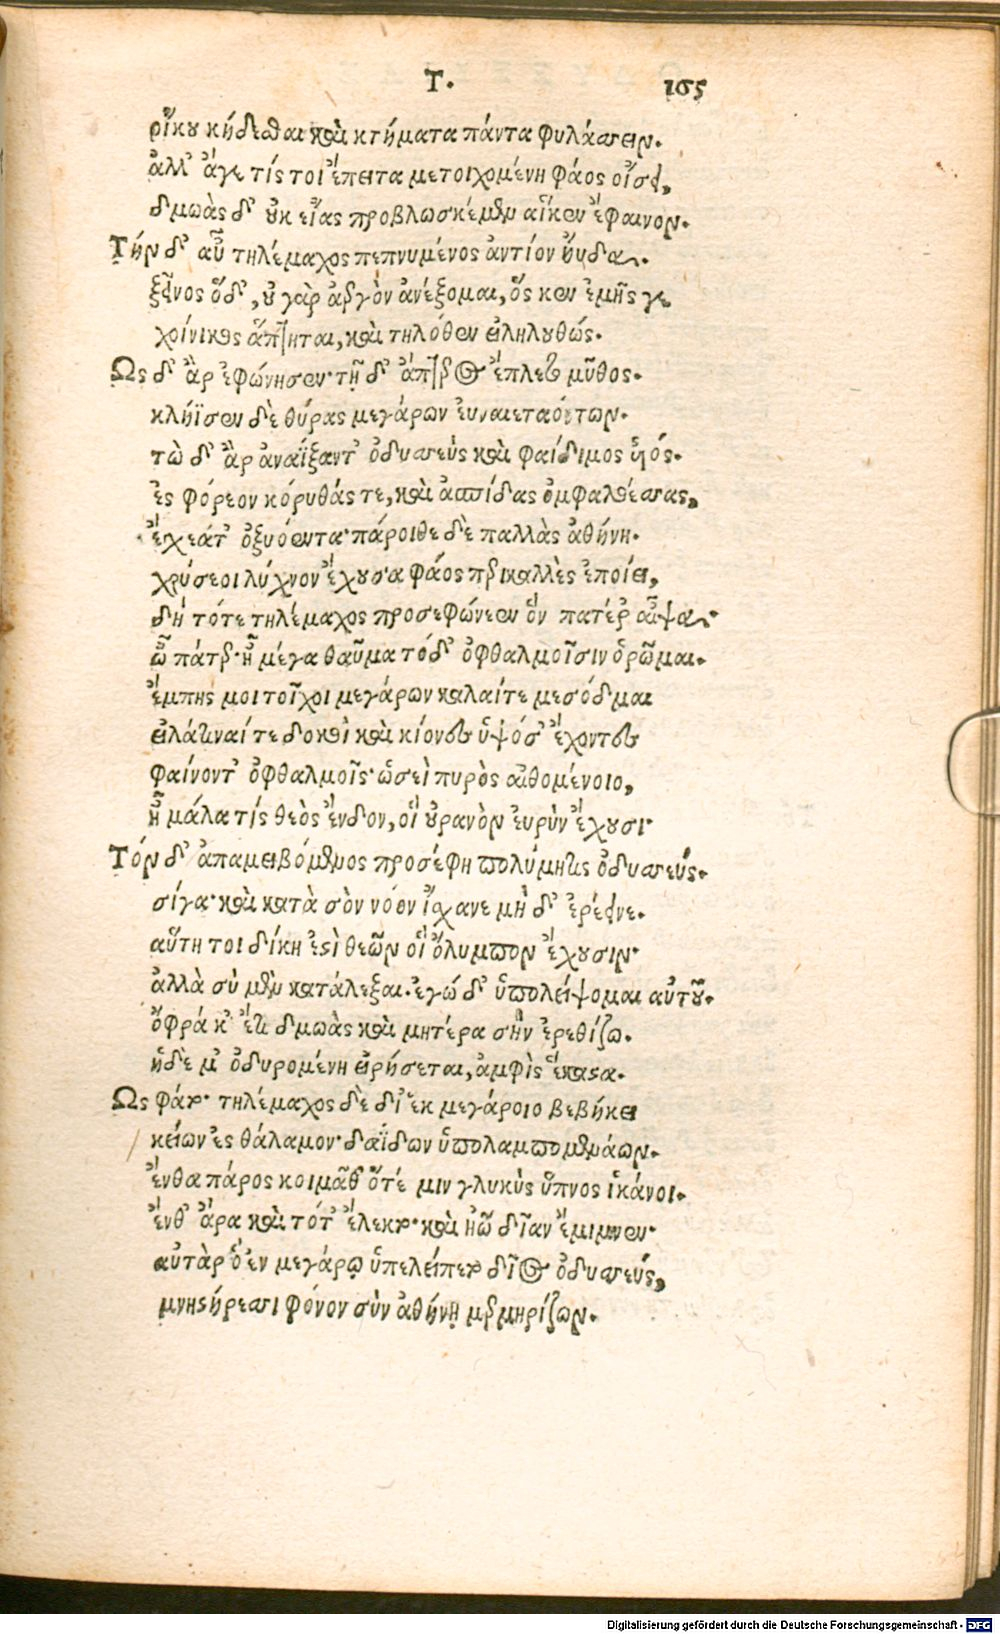 Τ. 165
ρίκου κήδεσθαι καὶ κτήματα πάντα φυλάσσειν.
ἀλλ' ἄγε τίς τοι ἔπειτα μετοιχομένη φάος οἴσει,
δμωὰς δ' οὐκ εἴας προβλωσκέμεν αἵκεν ἔφαινον.
Τὴν δ' αὖ τηλέμαχος πεπνυμένος ἀντίον ηὔδα.
ξεῖνος ὅδ', οὐ γὰρ ἀεργὸν ἀνέξομαι, ὅς κεν ἐμῆς γε
χοίνικος ἅπτηται, καὶ τηλόθεν εἰληλουθώς.
Ως δ' ἂρ ἐφώνησεν· τῇ δ' ἄπτερος ἔπλετο μῦθος.
κλήϊσεν δὲ θύρας μεγάρων εὐναιεταόντων.
τὼ δ' ἂρ ἀναΐξαντ' ὀδυσσεὺς καὶ φαίδιμος ὑός.
ἐς φόρεον κόρυθάς τε, καὶ ἀσπίδας ὀμφαλοέσσας,
ἔγχεάτ' ὀξυόεντα· πάροιθε δὲ παλλὰς ἀθήνη.
χρύσεοι λύχνον ἔχουσα φάος περικαλλὲς ἐποίει,
δὴ τότε τηλέμαχος προσεφώνεεν ὃν πατέρ' αἶψα·
ὦ πάτερ· ἦ μέγα θαῦμα τόδ' ὀφθαλμοῖσιν ὁρῶμαι.
ἔμπης μοι τοῖχοι μεγάρων καλαίτε μεσόδμαι
εἰλάτιναί τε δοκοὶ καὶ κίονες ὑψόσ' ἔχοντες
φαίνοντ' ὀφθαλμοῖς· ὡσεὶ πυρὸς αἰθομένοιο,
ἦ μάλα τίς θεὸς ἔνδον, οἳ οὐρανὸν εὐρὺν ἔχουσι·
Τὸν δ' ἀπαμειβόμενος προσέφη πολύμητις ὀδυσσεύς.
σίγα· καὶ κατὰ σὸν νόον ἴσχανε μὴ δ' ἐρέεινε.
αὕτη τοι δίκη ἐστὶ θεῶν οἳ ὄλυμπον ἔχουσιν·
ἀλλὰ σὺ μὲν κατάλεξαι. ἐγώ δ' ὑπολείψομαι αὐτοῦ.
ὄφρά κ' ἔτι δμωὰς καὶ μητέρα σὴν ἐρεθίζω.
ἡδὲ μ' ὀδυρομένη εἰρήσεται, ἀμφὶς ἕκαστα.
Ως φάτο· τηλέμαχος δὲ δι' ἐκ μεγάροιο βεβήκει
κείων ἐς θάλαμον· δαΐδων ὑπολαμπομενάων.
ἔνθα πάρος κοιμᾶθ' ὅτέ μιν γλυκὺς ὕπνος ἱκάνοι.
ἔνθ' ἄρα καὶ τότ' ἔλεκτο· καὶ ἠῶ δῖαν ἔμιμνεν·
αὐτὰρ ὁ ἐν μεγάρῳ ὑπελείπετο δῖος ὀδυσσεύς,
μνηστήρεσσι φόνον σὺν ἀθήνῃ μερμηρίζων.
Digitalisierung gefördert durch die Deutsche Forschungsgemeinschaft - DFG